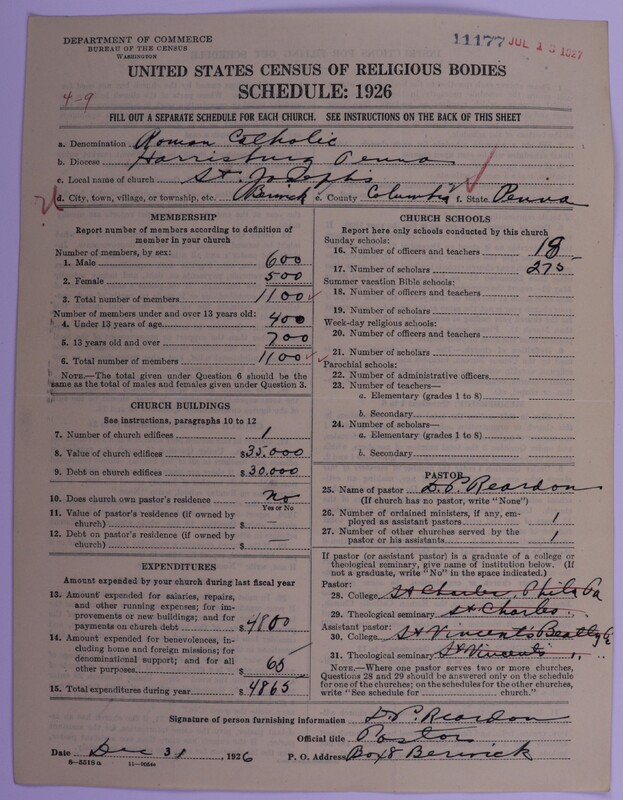 DEPARTMENT OF COMMERCE
BUREAU OF THE CENSUS
WASHINGTON
11177 JUL 18 1927
UNITED STATES CENSUS OF RELIGIOUS BODIES
SCHEDULE: 1926
4-9
FILL OUT A SEPARATE SCHEDULE FOR EACH CHURCH. SEE INSTRUCTIONS ON THE BACK OF THIS SHEET
a. Denomination Roman Catholic
b. Diocese Harrisburg Penna
c. Local name of church St. Josephs
d. City, town, village, or township, etc. Berwick e. County Columbia f. State Penna
MEMBERSHIP
Report number of members according to definition of
member in your church
Number of members, by sex:
1. Male 600
2. Female 500
3. Total number of members 1100
Number of members under and over 13 years old:
4. Under 13 years of age 400
5. 13 years old and over 700
6. Total number of members 1100
NOTE.—The total given under Question 6 should be the
same as the total of males and females given under Question 3.
CHURCH BUILDINGS
See instructions, paragraphs 10 to 12
7. Number of church edifices 1
8. Value of church edifices $35.000
9. Debt on church edifices $30.000
10. Does church own pastor's residence no
Yes or No
11. Value of pastor's residence (if owned by
church) $ —
12. Debt on pastor's residence (if owned by
church) $ —
EXPENDITURES
Amount expended by your church during last fiscal year
13. Amount expended for salaries, repairs,
and other running expenses; for im-
provements or new buildings; and for
payments on church debt $4800
14. Amount expended for benevolences, in-
cluding home and foreign missions; for
denominational support; and for all
other purposes $ 65
15. Total expenditures during year $4865
CHURCH SCHOOLS
Report here only schools conducted by this church
Sunday schools:
16. Number of officers and teachers 18
17. Number of scholars 275
Summer vacation Bible schools:
18. Number of officers and teachers
19. Number of scholars
Week-day religious schools:
20. Number of officers and teachers
21. Number of scholars
Parochial schools:
22. Number of administrative officers
23. Number of teachers—
a. Elementary (grades 1 to 8)
b. Secondary
24. Number of scholars—
a. Elementary (grades 1 to 8)
b. Secondary
PASTOR
25. Name of pastor D.P. Reardon
(If church has no pastor, write "None")
26. Number of ordained ministers, if any, em-
ployed as assistant pastors 1
27. Number of other churches served by the
pastor or his assistants 1
If pastor (or assistant pastor) is a graduate of a college or
theological seminary, give name of institution below. (If
not a graduate, write "No" in the space indicated.)
Pastor:
28. College St Charles, Phila Pa
29. Theological seminary St Charles
Assistant pastor:
30. College St Vincents Beatty
31. Theological seminary St Vincents " "
NOTE.—Where one pastor serves two or more churches,
Questions 28 and 29 should be answered only on the schedule
for one of the churches; on the schedules for the other churches,
write "See schedule for church."
Signature of person furnishing information D.P. Reardon
Official title Pastor
Date Dec 31, 1926 P. O. Address Box 8 Berwick
8—5518a 11—9284a